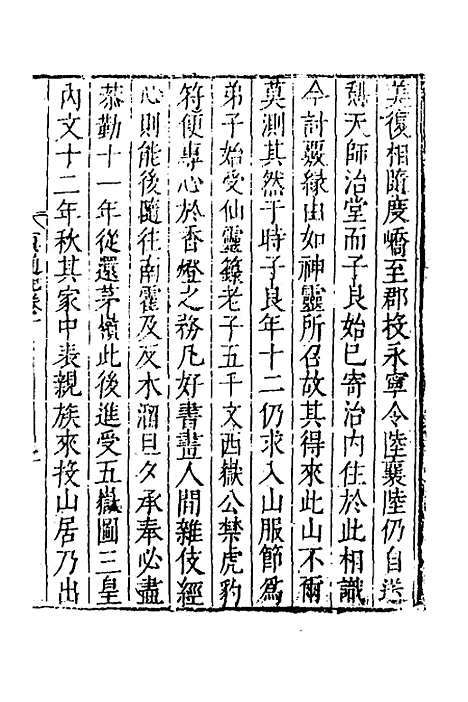 美復相隨度嶠至郡投永寧令陸襄陸仍自送
憩天師治堂而子良始已寄治內住於此相識
今討覈緣由如神靈所召故其得來此山不爾
莫測其然于時子良年十二仍求入山服節為
弟子始受仙靈籙老子五千文西嶽公禁虎豹
符便專心於香燈之務凡好書畫人間雜伎經
心則能後隨往南霍及反木溜旦夕承奉必盡
恭勤十一年從還茅嶺此後進受五嶽圖三皇
內文十二年秋其家中表親族來投山居乃出